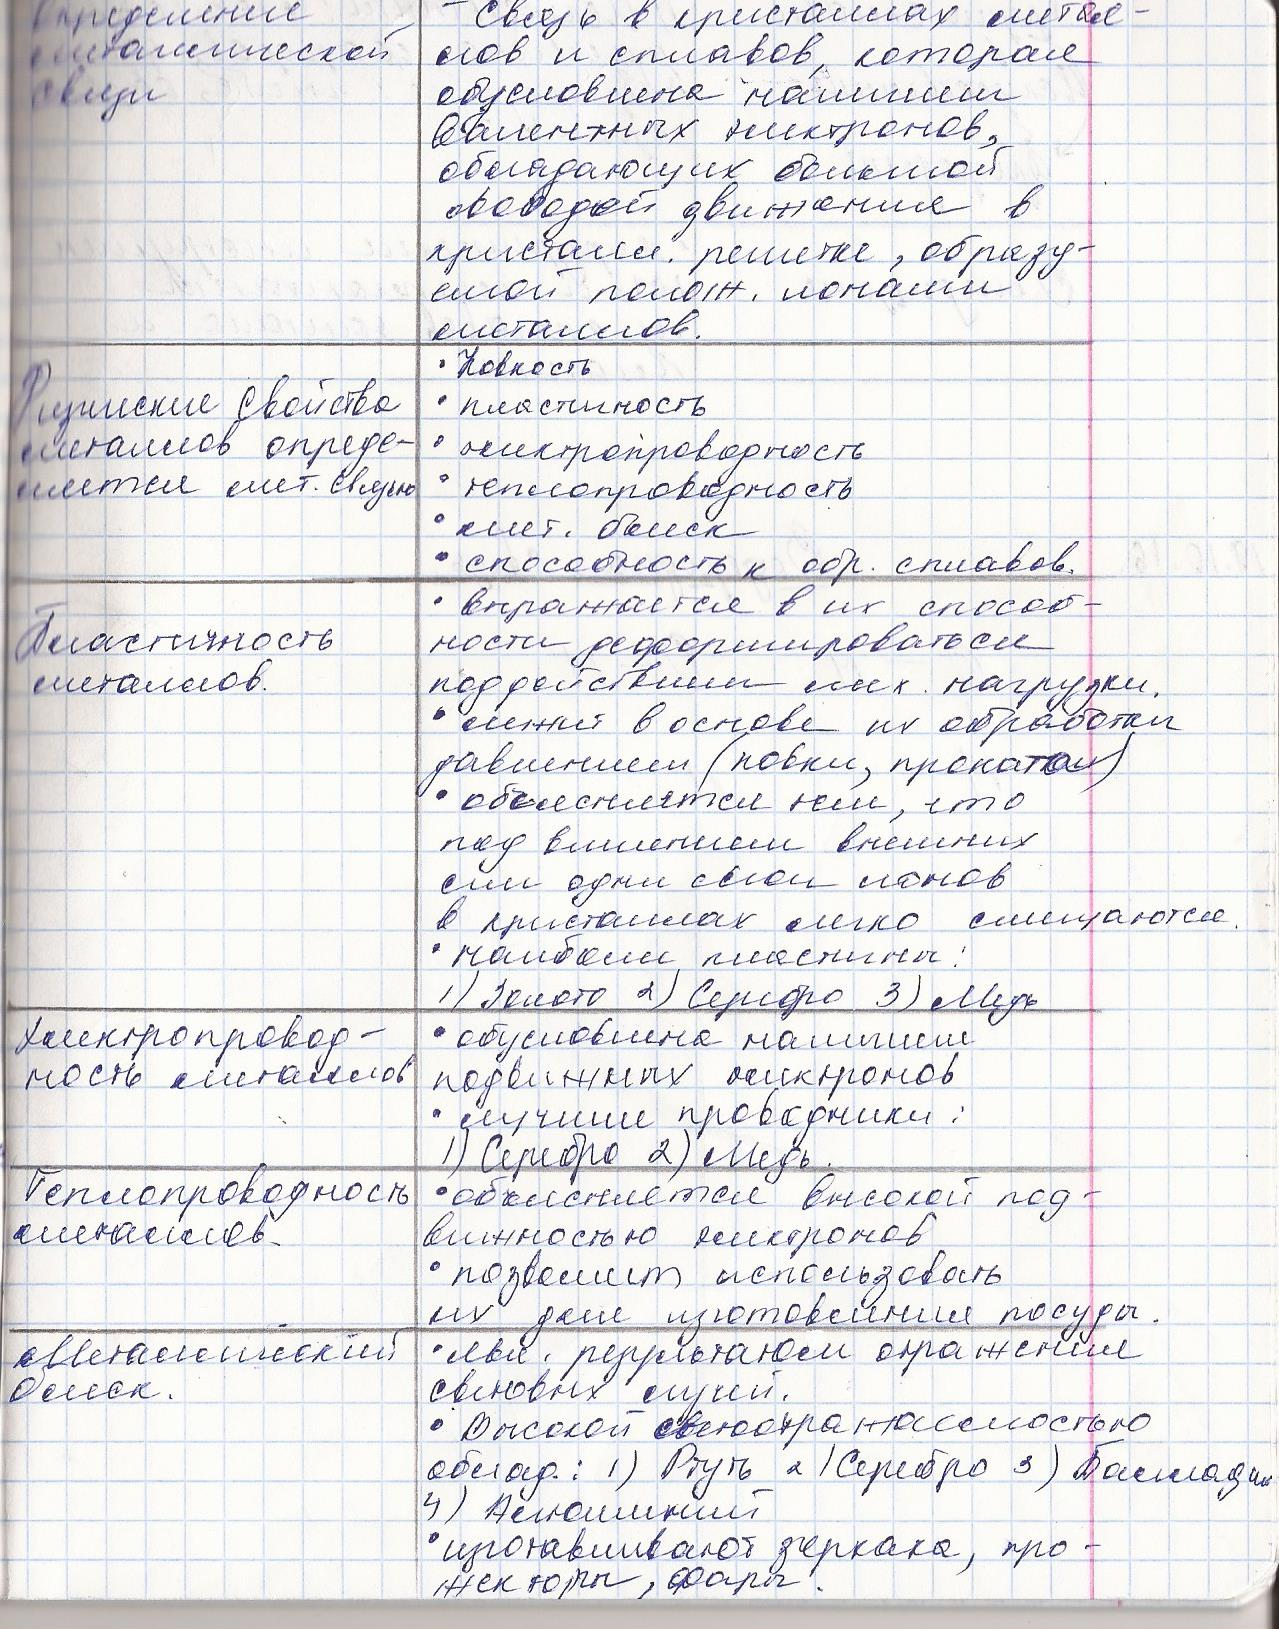 Определение
металлической
связи
- Связь в кристаллах метал-
лов и сплавов, которая
обусловлена наличием
валентных электронов,
обладающих большой
свободой движения в
кристалл. решетке, образу-
емой полож. ионами
металлов.
Физические свойства
металлов опреде-
ляется мет. связью
• Ковкость
• пластичность
• электропроводность
• теплопроводность
• мет. блеск
• способность к обр. сплавов.
Пластичность
металлов.
• выражается в их способ-
ности деформироваться
под действием мех. нагрузки.
• лежит в основе их обработки
давлением (ковки, проката)
• объясняется тем, что
под влиянием внешних
сил одни слои ионов
в кристаллах легко смещаются.
• наиболее пластичны:
1) Золото 2) Серебро 3) Медь
Электропровод-
ность металлов
• обусловлена наличием
подвижных электронов
• лучшие проводники:
1) Серебро 2) Медь.
Теплопроводность
металлов.
• объясняется высокой под-
вижностью электронов
• позволяет использовать
их для изготовления посуды.
Металлический
блеск.
• явл. результатом отражения
световых лучей.
• Высокой светоотражаемостью
облад.: 1) Ртуть 2) Серебро 3) Палладий
4) Алюминий
• изготавливают зеркала, про-
жекторы, фары.